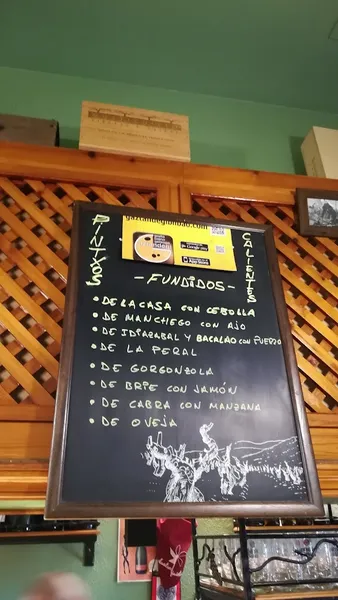 PINTXOS
CALIENTES
-FUNDIDOS-
• DE LA CASA CON CEBOLLA
• DE MANCHEGO CON AJO
• DE IDIAZABAL Y BACALAO CON PUERRO
• DE LA PERAL
• DE GORGONZOLA
• DE BRIE CON JAMÓN
• DE CABRA CON MANZANA
• DE OVEJA